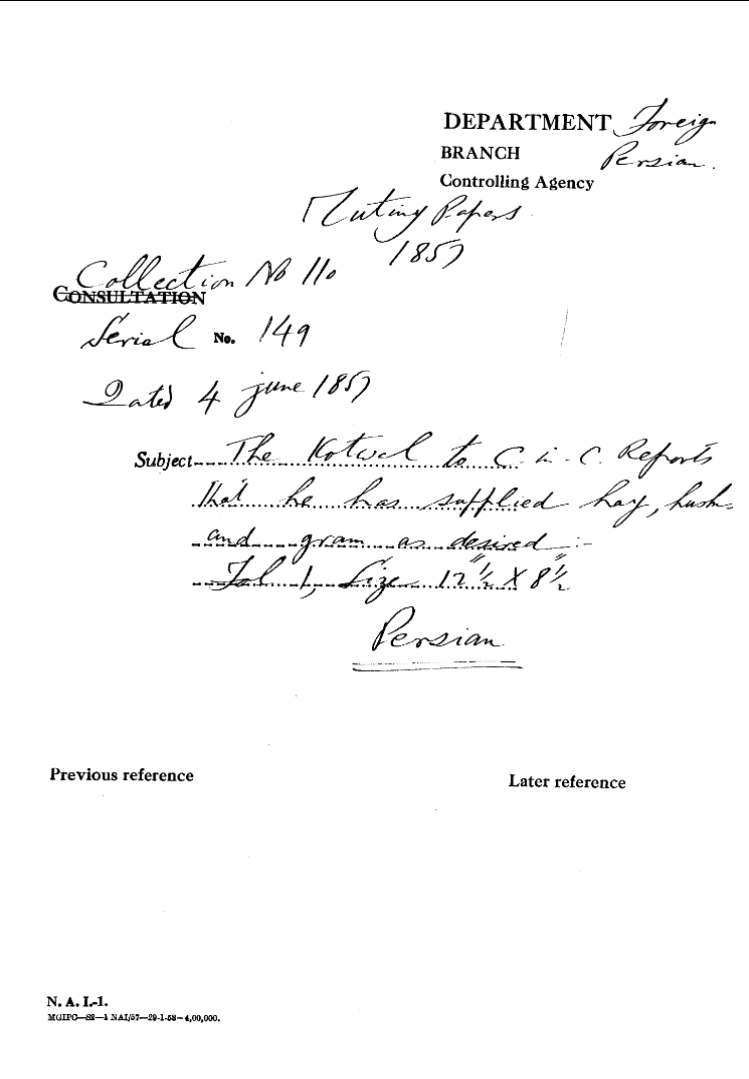 DEPARTMENT Foreign
BRANCH Persian.
Controlling Agency
Mutiny Papers
1857
Collection No 110
CONSULTATION
Serial No. 149
Dated 4 june 1857
Subject The Kotwal to C-in-C. Reports
that he has supplied hay,
and gram as desired :-
Fol 1, Size 12½" X 8½"
Persian
Previous reference
Later reference
N. A. I.-1.
MGIPC—S2—1 NAI/57—29-1-58—4,00,000.